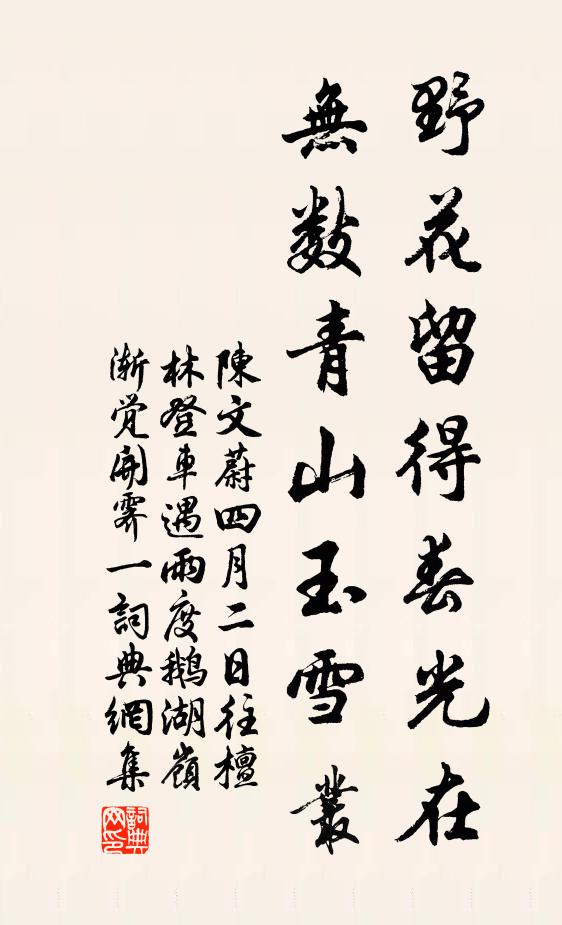 野花留得春光在
無數青山玉雪叢
陳文蔚四月二日往檀
林登車遇雨度鵝湖嶺
漸覺開霽一詞典網集
詞典網印